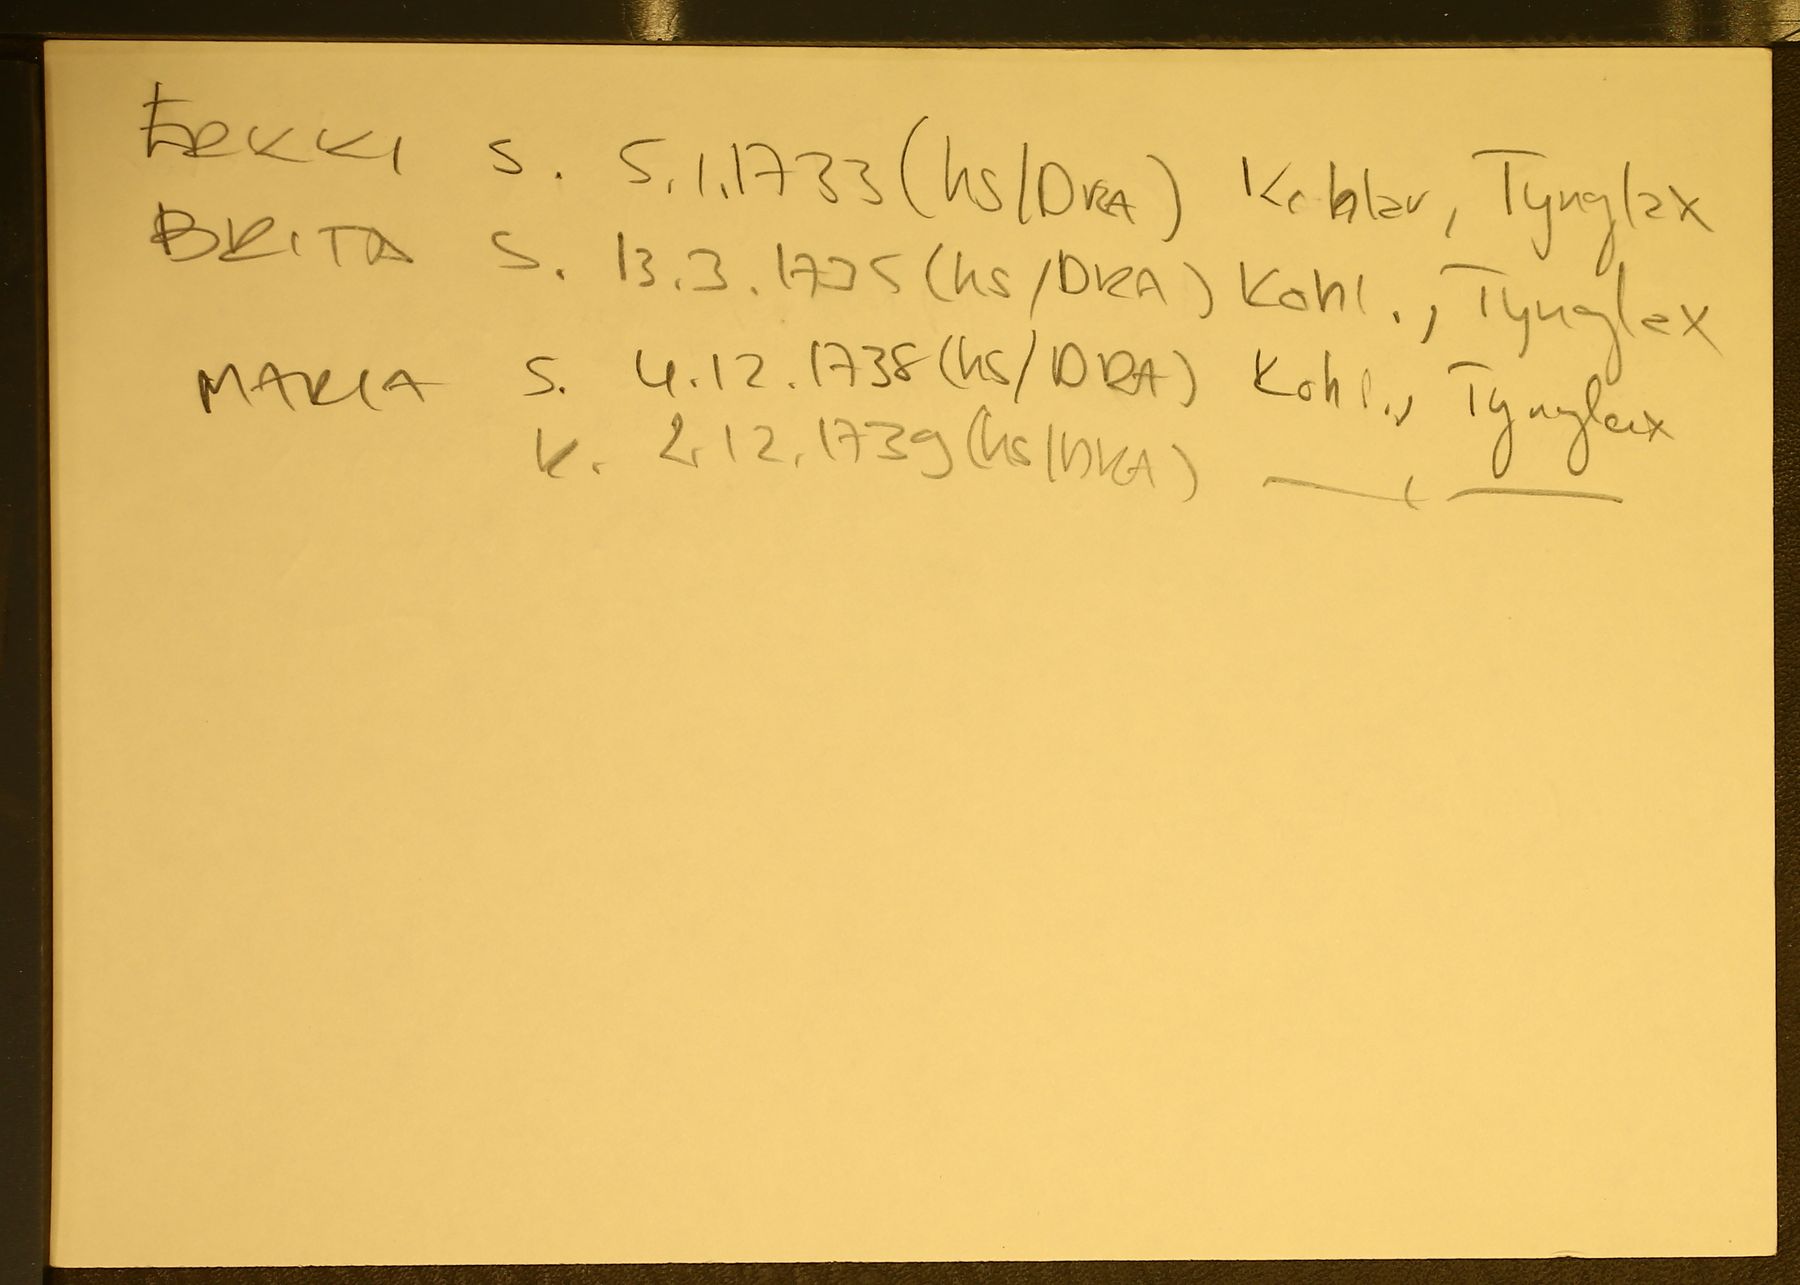 ERKKI s. 5.1.1733 (hs/DRA) Kohlax, Tynglax
BRITA s. 13.3.1735 (hs/DRA) Kohl., Tynglax
MARIA s. 4.12.1738 (hs/DRA) Kohl., Tynglax
k. 2.12.1739 (hs/DRA) — , —